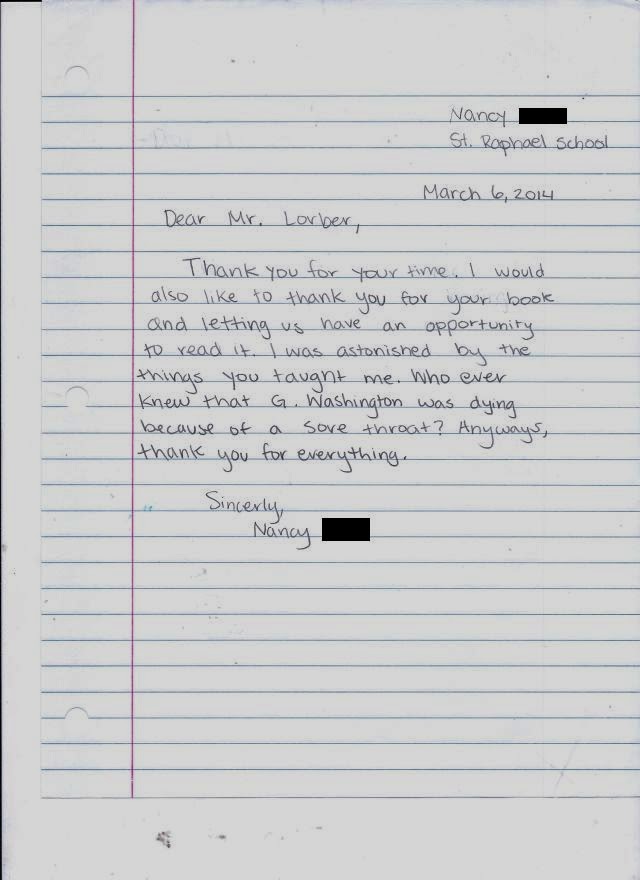 Nancy
St. Raphael School
March 6, 2014
Dear Mr. Lorber,
Thank you for your time. I would
also like to thank you for your book
and letting us have an opportunity
to read it. I was astonished by the
things you taught me. Who ever
knew that G. Washington was dying
because of a sore throat? Anyways,
thank you for everything.
Sincerly,
Nancy